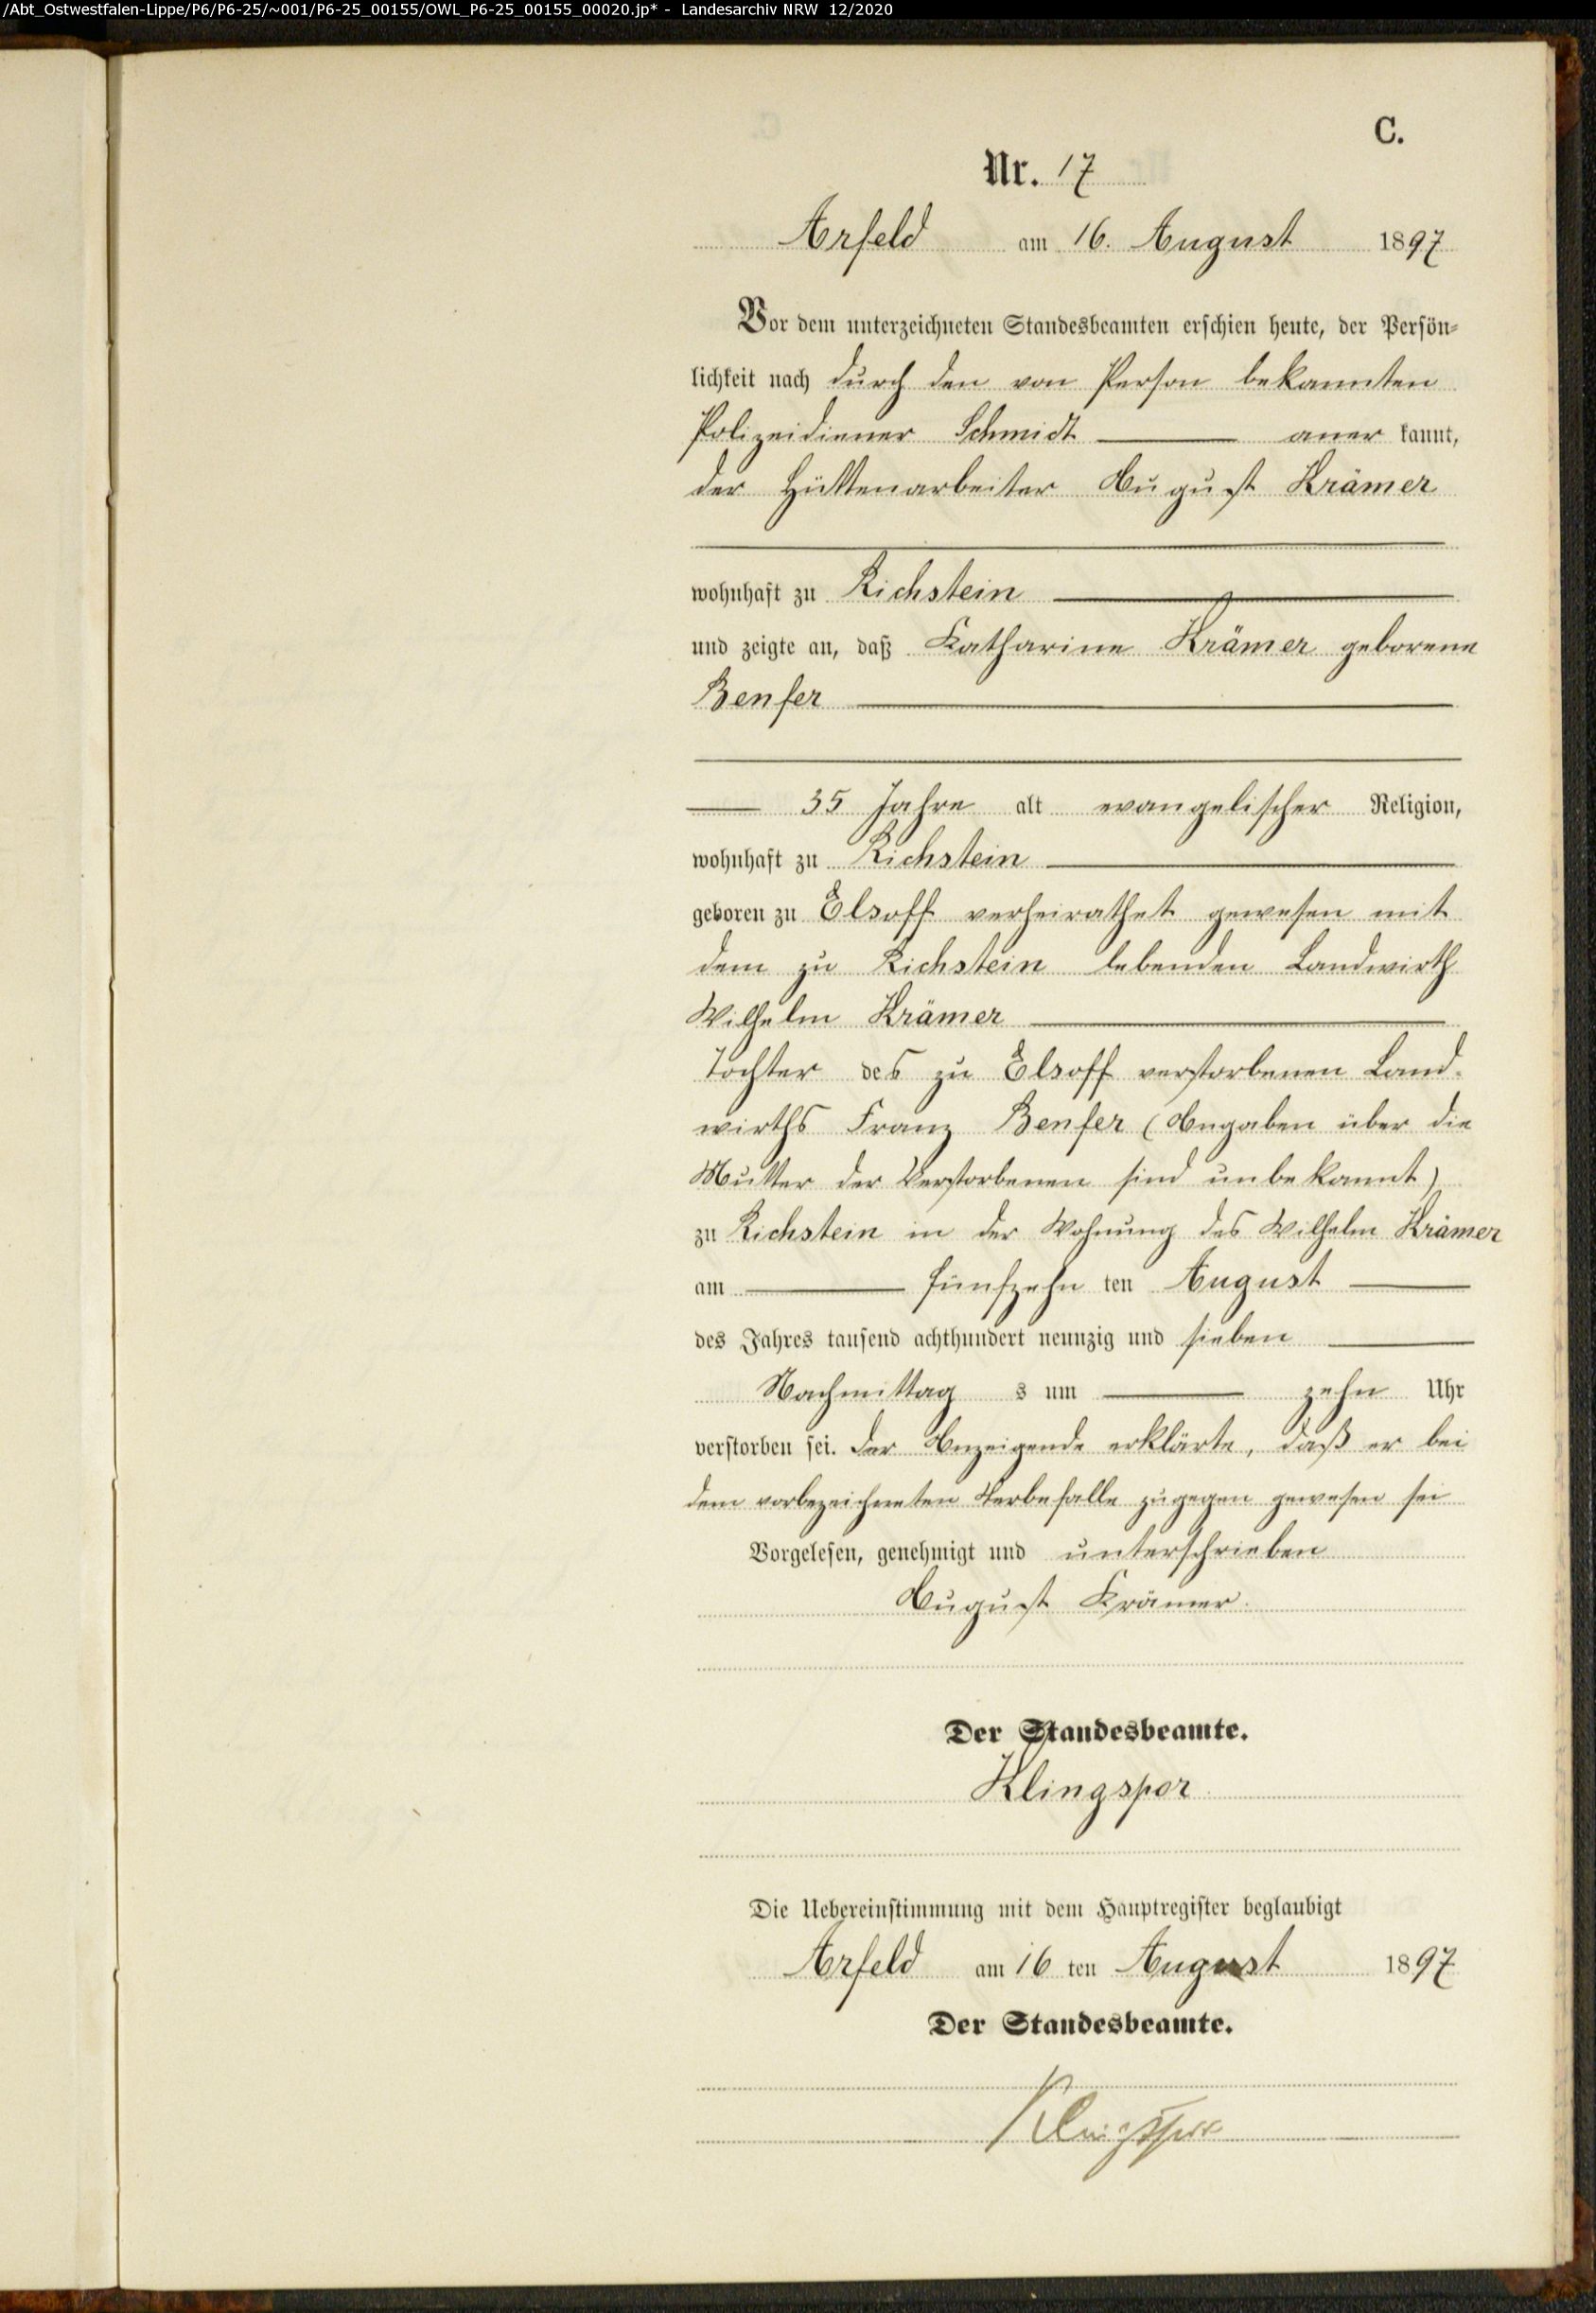 /Abt_Ostwestfalen-Lippe/P6/P6-25/~001/P6-25_00155/OWL_P6-25_00155_00020.jp* - Landesarchiv NRW 12/2020
C.
Nr. 17
Arfeld am 16. August 1897
Vor dem unterzeichneten Standesbeamten erschien heute, der Persön-
lichkeit nach durch den von Person bekannten
Polizeidiener Schmidt aner kannt,
der Hüttenarbeiter August Krämer
wohnhaft zu Richstein
und zeigte an, daß Katharine Krämer geborene
Benfer
35 Jahre alt evangelischer Religion,
wohnhaft zu Richstein
geboren zu Elsoff verheirathet gewesen mit
dem zu Richstein lebenden Landwirth
Wilhelm Krämer
Tochter des zu Elsoff verstorbenen Land-
wirths Franz Benfer (Angaben über die
Mutter der Verstorbenen sind unbekannt)
zu Richstein in der Wohnung des Wilhelm Krämer
am fünfzehn ten August
des Jahres tausend achthundert neunzig und sieben
Nachmittag s um zehn Uhr
verstorben sei. Der Anzeigende erklärte, daß er bei
dem vorbezeichneten Sterbefalle zugegen gewesen sei
Vorgelesen, genehmigt und unterschrieben
August Krämer.
Der Standesbeamte.
Klingspor
Die Uebereinstimmung mit dem Hauptregister beglaubigt
Arfeld am 16 ten August 1897
Der Standesbeamte.
Klingspor